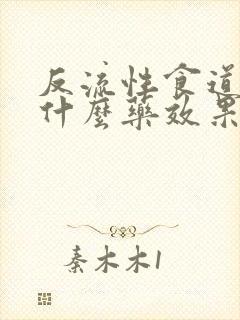 反流性食道
什麼藥效果
秦木木1